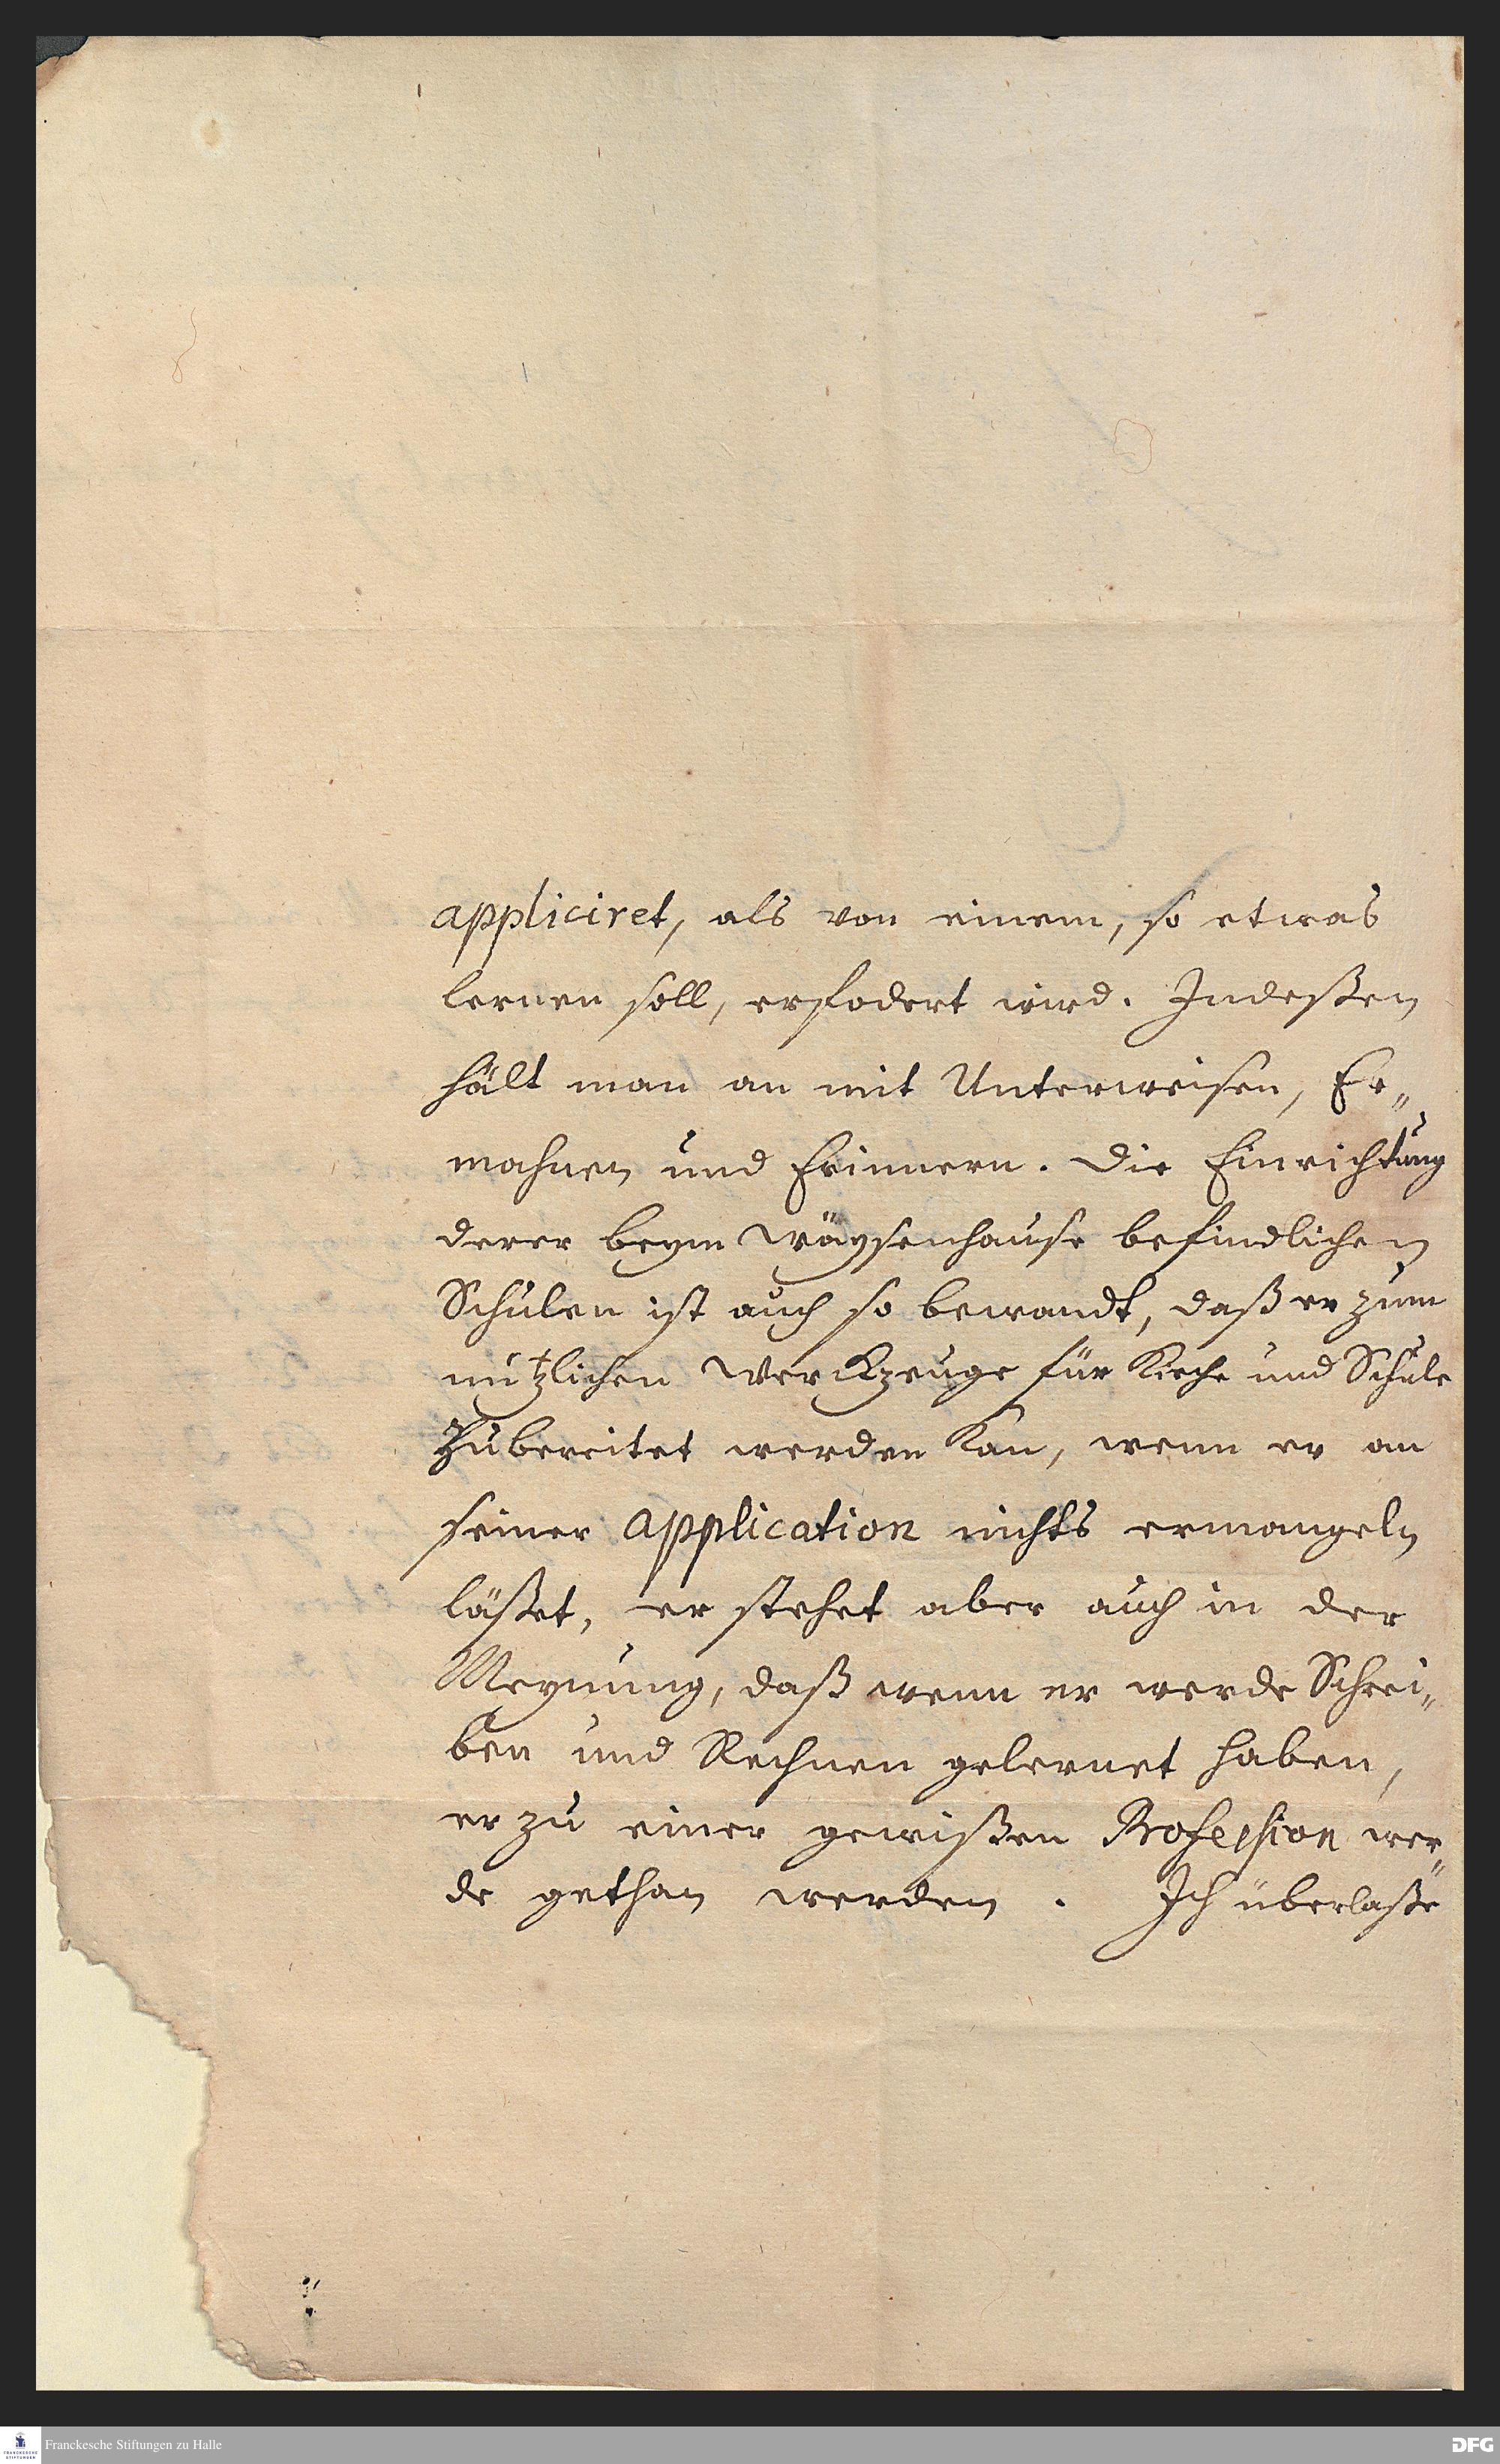 appliciret, als von einem, so etwas
lernen soll, erfodert wird. Indeßen
hält man an mit Unterweisen, Er„
mahnen und Erinnern. Die Einrichtung
derer beym Wäysenhause befindlichen
Schulen ist auch so bewandt, daß er zum
nützlichen Werckzeuge für Kirche und Schule
zubereitet werden kan, wenn er an
seiner application nichts ermangeln
läßet, er stehet aber auch in der
Meynung, daß wenn er werde Schrei„
ben und Rechnen gelernet haben,
er zu einer gewißen Profession wer„
de gethan werden. Ich überlaße
FRANCKESCHE STIFTUNGEN Franckesche Stiftungen zu Halle DFG